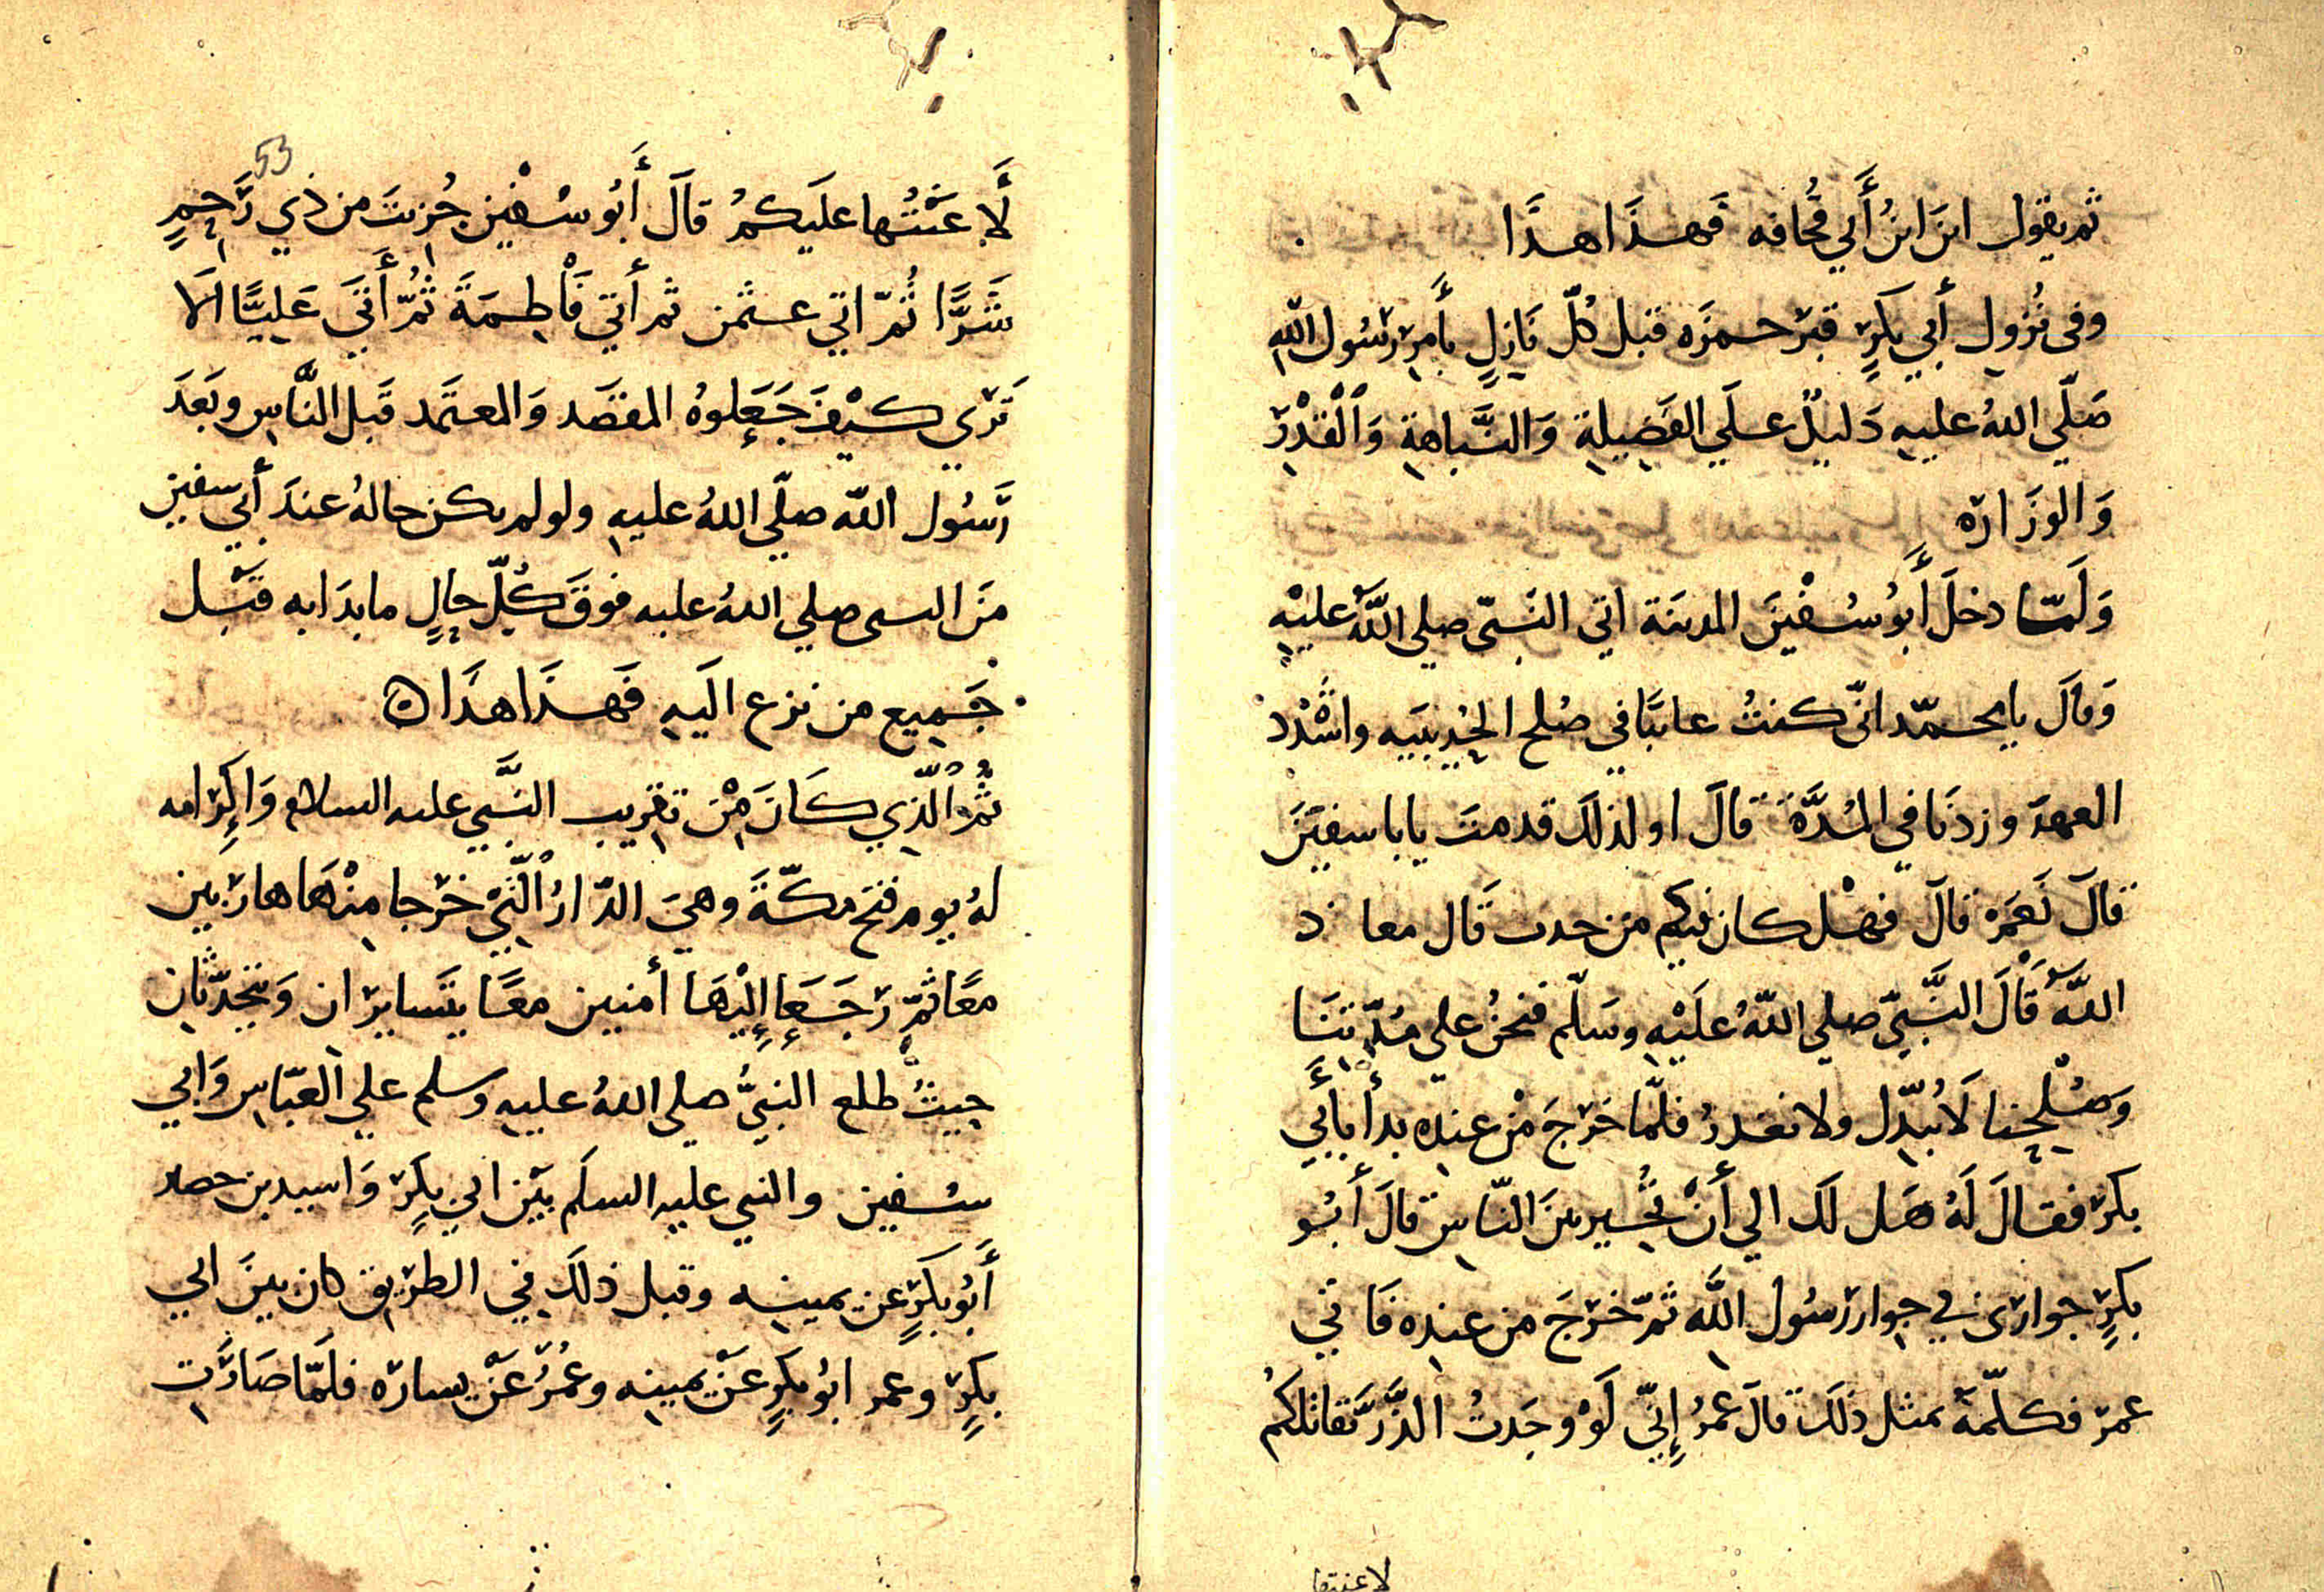 ثم يقول اين ابنُ أَبي قُحافه فَهـذَا هـذَا
وفى نُزولِ أَبي بكرٍ قبرَ حمزَه قبل كُلّ نَازِلٍ بأَمرِ رسُول الله
صَلّي اللهُ عليهِ دَليلٌ علَي الفَضِيلةِ وَالنَّباهةِ وَالْقدْرِ
وَالوزَاره
وَلَمّا دخلَ أَبُو سُفْينَ المدينَة اتى النَبىّ صلي اللَّهُ عليْهِ
وَقالَ يا محمّد انّى كنتُ غائبًا في صُلح الحُديبيَه واشْدُد
العهدَ وزدنَا في المُدَّة قالَ اولذلكَ قدمتَ يابا سفينَ
قالَ نَعَمْ قالَ فهْل كان فيكم من حدث قَال معاد
اللَّه قَالَ النَّبيّ صلي اللّهُ علَيْهِ وسَلّم فنحنُ علي مُدّتِنَا
وَصُلْحِنا لَا نُبدّل ولا نغدرُ فلمّا خرَجَ مْن عندِه بدأَ بأَبي
بكر فقالَ لَهُ هَل لكَ الي أَنْ تُجير بينَ النّاسِ قالَ أَبُو
بكرٍ جوارى في جوار رَسُول اللَّه ثمّ خرَجَ من عندِه فَاتي
عمرَ فكلّمهَ بمثل ذلكَ قالَ عمَرُ إِنّي لَوْ وجَدتُ الذَّرَّ تقاتلكمُ
لاعنتها
53
لَأَعَنْتُها علَيكمُ قالَ أَبُو سُفْين جُزِيتَ من ذي رَحِمٍ
شَرًّا ثُمّ اتي عثمن ثم أتي فَاطِمَةَ ثُمّ أَتَي عَلِيًّا الَا
تَرَى كيْفَ جَعَلوهُ المقصَد وَالمعتمَد قَبل النَّاسِ وبَعدَ
رَسُول اللّه صلّي اللهُ عليهِ ولو لم يكن حالهُ عندَ أَبي سفين
مَن النبى صلي اللهُ عليه فوقَ كُلّ حالٍ ما بدَا به قَبْل
جَمِيع من نزع اليَهِ فَهـذَا هذَا ه
ثُمّ الّذِي كَانَ مِنْ تقرِيبِ النَّبي عليه السلام وَإِكرَامه
لهُ يوم فتح مكّةَ وهىَ الدّارُ الّتِي خرَجا مِنْهَا هاربَين
معًا ثمّ رَجَعا إِلَيْهَا أمنين معًا يتَسايرَان وَيتَحدّثان
حيثُ طلع النبيُّ صلي اللهُ عليهِ وسلم علي العبّاسِ وَابي
سُفين والنبي عليهِ السلَم بيَن ابي بكِرَ وَاسيد بن حصد
أَبُو بكرٍ عن يمينِه وقبل ذلكَ فِي الطرَيق كان بينَ ابي
بكرٍ وعمر ابُو بكرٍ عَنْ يمينِه وعمُرُ عَنْ يساره فلَمّا صَارَت